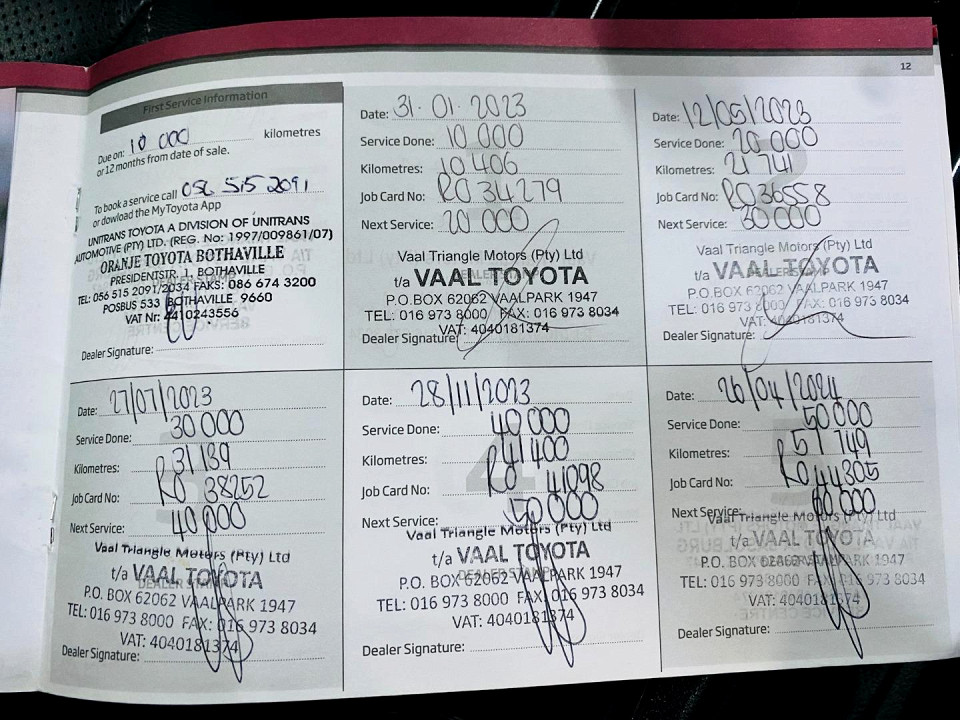 12
First Service Information
Due on: 10 000 kilometres
or 12 months from date of sale.
To book a service call 056 515 2091
or dowload the MyToyota App
UNITRANS TOYOTA A DIVISION OF UNITRANS
AUTOMOTIVE (PTY) LTD. (REG. No: 1997/009861/07)
ORANJE TOYOTA BOTHAVILLE
PRESIDENTSTR. 1, BOTHAVILLE
TEL: 056 515 2091/2034 FAKS: 086 674 3200
POSBUS 533 BOTHAVILLE 9660
VAT Nr: 4410243556
Dealer Signature:
Date: 31.01.2023
Service Done: 10 000
Kilometres: 10 406
Job Card No: RO 34279
Next Service: 20 000
Vaal Triangle Motors (Pty) Ltd
t/a VAAL TOYOTA
P.O.BOX 62062 VAALPARK 1947
TEL: 016 973 8000 FAX: 016 973 8034
VAT: 4040181374
Dealer Signature:
Date: 12/05/2023
Service Done: 20 000
Kilometres: 21 741
Job Card No: RO 36558
Next Service: 30 000
Vaal Triangle Motors (Pty) Ltd
t/a VAAL TOYOTA
P.O.BOX 62062 VAALPARK 1947
TEL: 016 973 8000 FAX: 016 973 8034
VAT: 4040181374
Dealer Signature:
Date: 27/07/2023
Service Done: 30 000
Kilometres: 31 139
Job Card No: RO 38252
Next Service: 40 000
Vaal Triangle Motors (Pty) Ltd
t/a VAAL TOYOTA
DEALER STAMP
P.O. BOX 62062 VAALPARK 1947
TEL: 016 973 8000 FAX: 016 973 8034
VAT: 4040181374
Dealer Signature:
Date: 28/11/2023
Service Done: 40 000
Kilometres: 41 400
Job Card No: RO 41098
Next Service: 50 000
Vaal Triangle Motors (Pty) Ltd
t/a VAAL TOYOTA
DEALER STAMP
P.O. BOX 62062 VAALPARK 1947
TEL: 016 973 8000 FAX: 016 973 8034
VAT: 4040181374
Dealer Signature:
Date: 26/04/2024
Service Done: 50 000
Kilometres: 51 749
Job Card No: RO 44305
Next Service: 60 000
Vaal Triangle Motors (Pty) Ltd
t/a VAAL TOYOTA
P.O. BOX 62062 VAALPARK 1947
TEL: 016 973 8000 FAX: 016 973 8034
VAT: 4040181374
Dealer Signature: